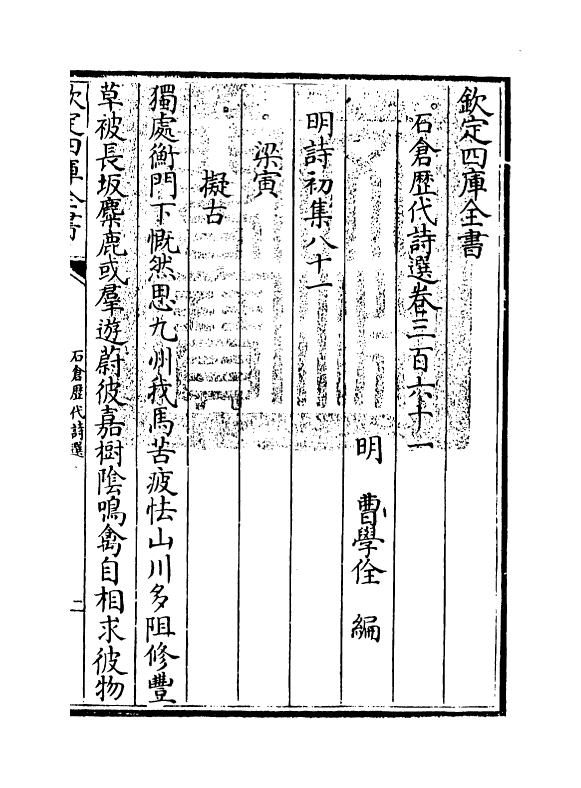 欽定四庫全書
石倉歷代詩選卷三百六十一
明 曹學佺 編
明詩初集八十一
梁寅
擬古
獨處衡門下慨然思九州我馬苦疲怯山川多阻修豐
草被長坂麋鹿或羣遊蔚彼嘉樹陰鳴禽自相求彼物
欽定四庫全書
石倉歷代詩選
二